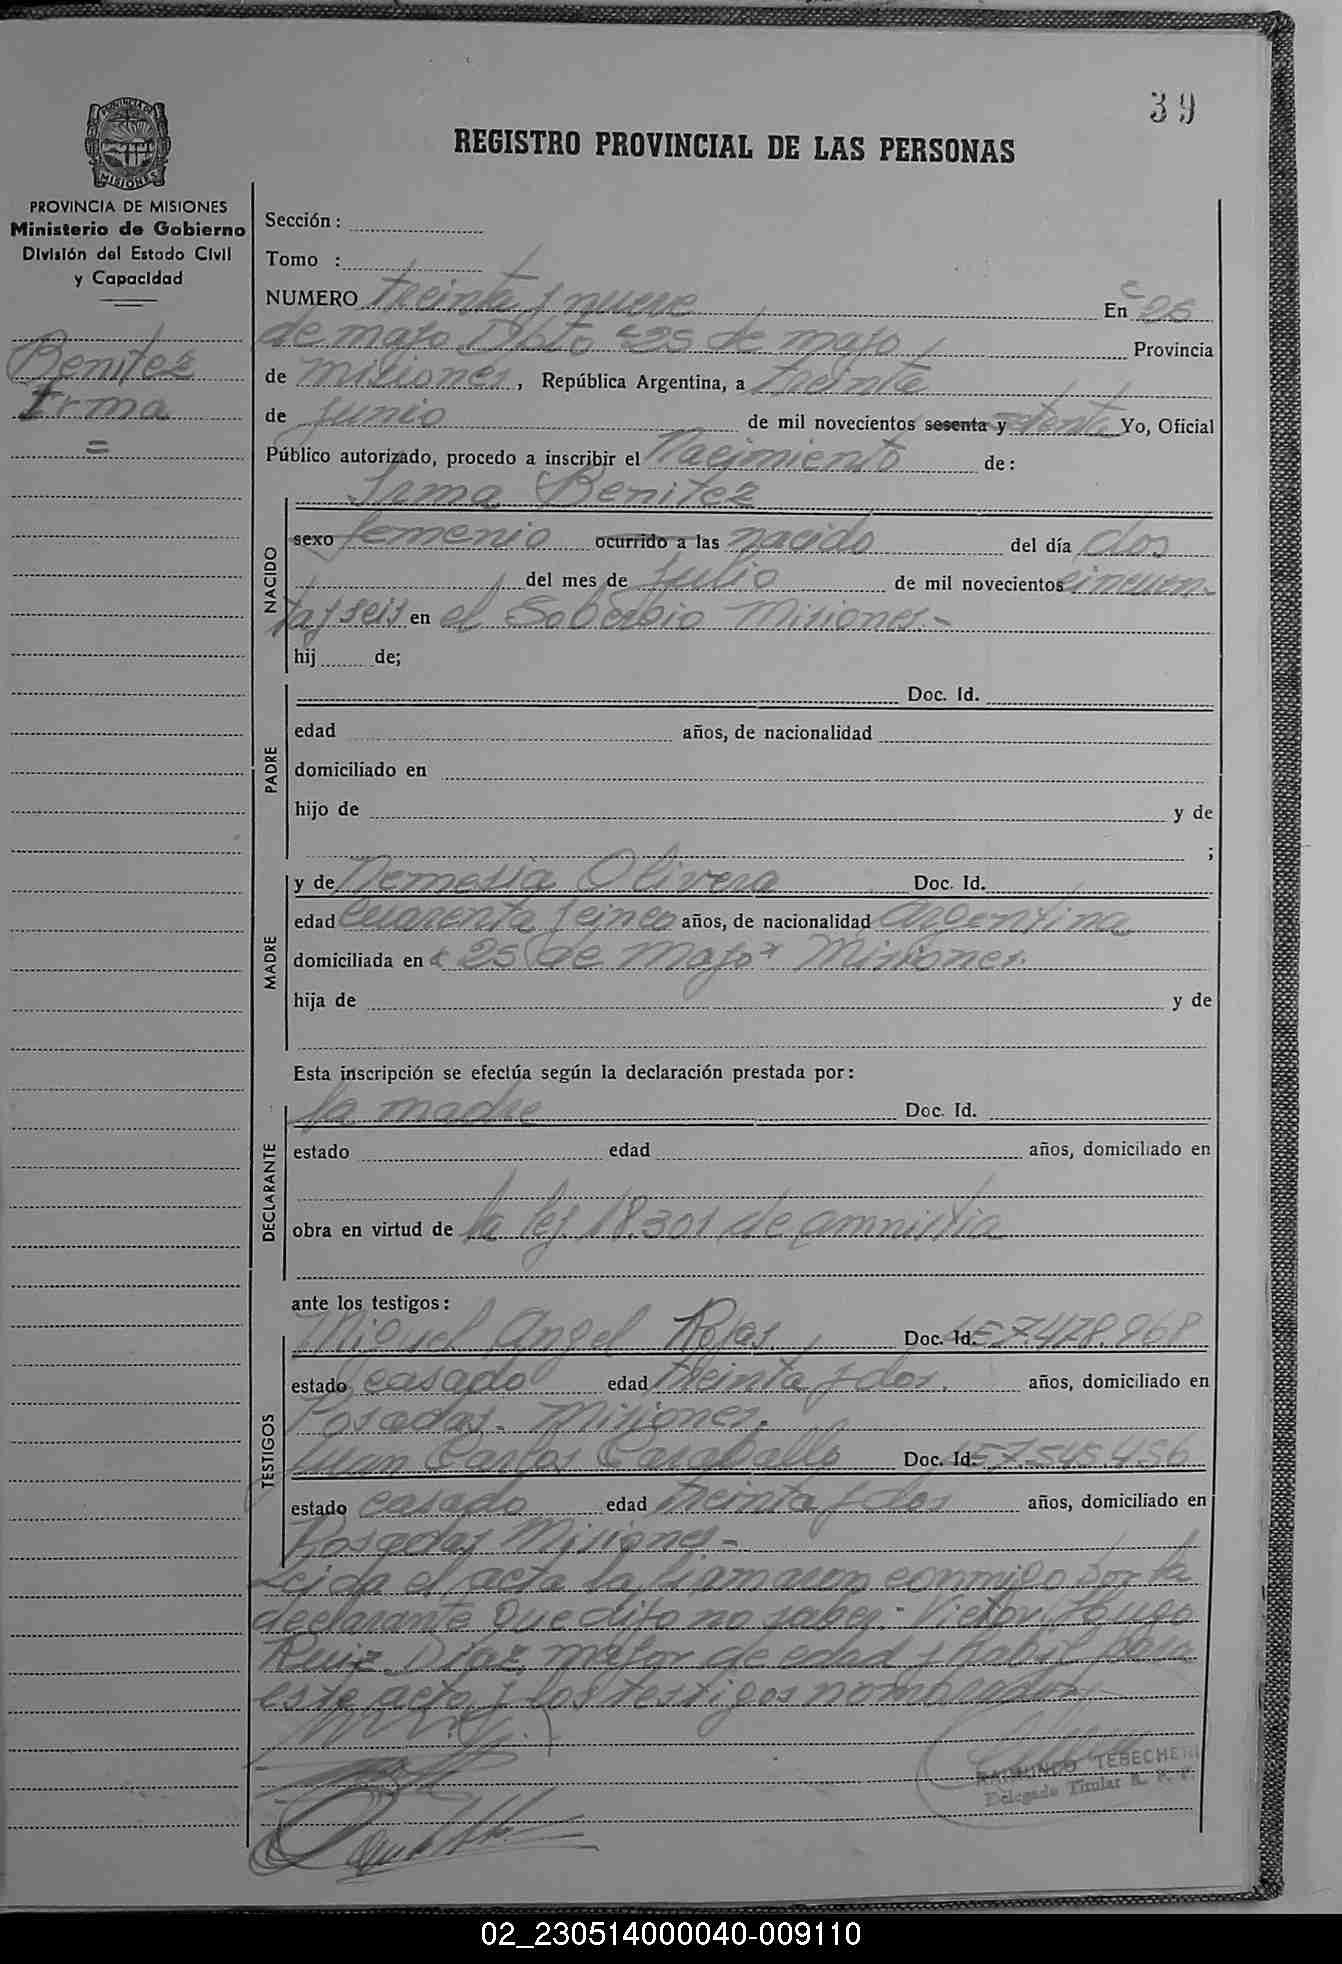 39
REGISTRO PROVINCIAL DE LAS PERSONAS
PROVINCIA DE MISIONES
PROVINCIA DE MISIONES
Ministerio de Gobierno
División del Estado Civil
y Capacidad
Benitez
Irma
=
Sección:
Tomo :
NUMERO treinta y nueve En "25
de mayo Dpto "25 de mayo Provincia
de misiones, República Argentina, a treinta
de junio de mil novecientos sesenta y setenta Yo, Oficial
Público autorizado, procedo a inscribir el Nacimiento de:
Irma Benitez
NACIDO
sexo femenio ocurrido a las nacido del día dos
del mes de Julio de mil novecientos cincuen
ta y seis en el Soberbio Misiones.-
hij de;
PADRE
Doc. Id.
edad años, de nacionalidad
domiciliado en
hijo de y de
;
MADRE
y de Nemesia Olivera Doc. Id.
edad cuarenta y cinco años, de nacionalidad argentina
domiciliada en "25 de Mayo" Misiones.
hija de y de
Esta inscripción se efectúa según la declaración prestada por:
DECLARANTE
la madre Doc. Id.
estado edad años, domiciliado en
obra en virtud de la ley 18.301 de amnistia
ante los testigos:
TESTIGOS
Miguel Angel Rojas. Doc. Id. LE 7.478.968
estado casado edad treinta y dos. años, domiciliado en
Posadas - Misiones.
Juan Carlos Caraballo Doc. Id. LE 7.545.456
estado casado edad treinta y dos años, domiciliado en
Posadas Misiones -
Leida el acta la firmaron conmigo por la
declarante que dijo no saber: Victor Hugo
Ruiz Diaz mayor de edad y habil para
este acto y los testigos nombrados
RAIMUNDO TEBECHERI
Delegado Titular R. P. P.
02_230514000040-009110